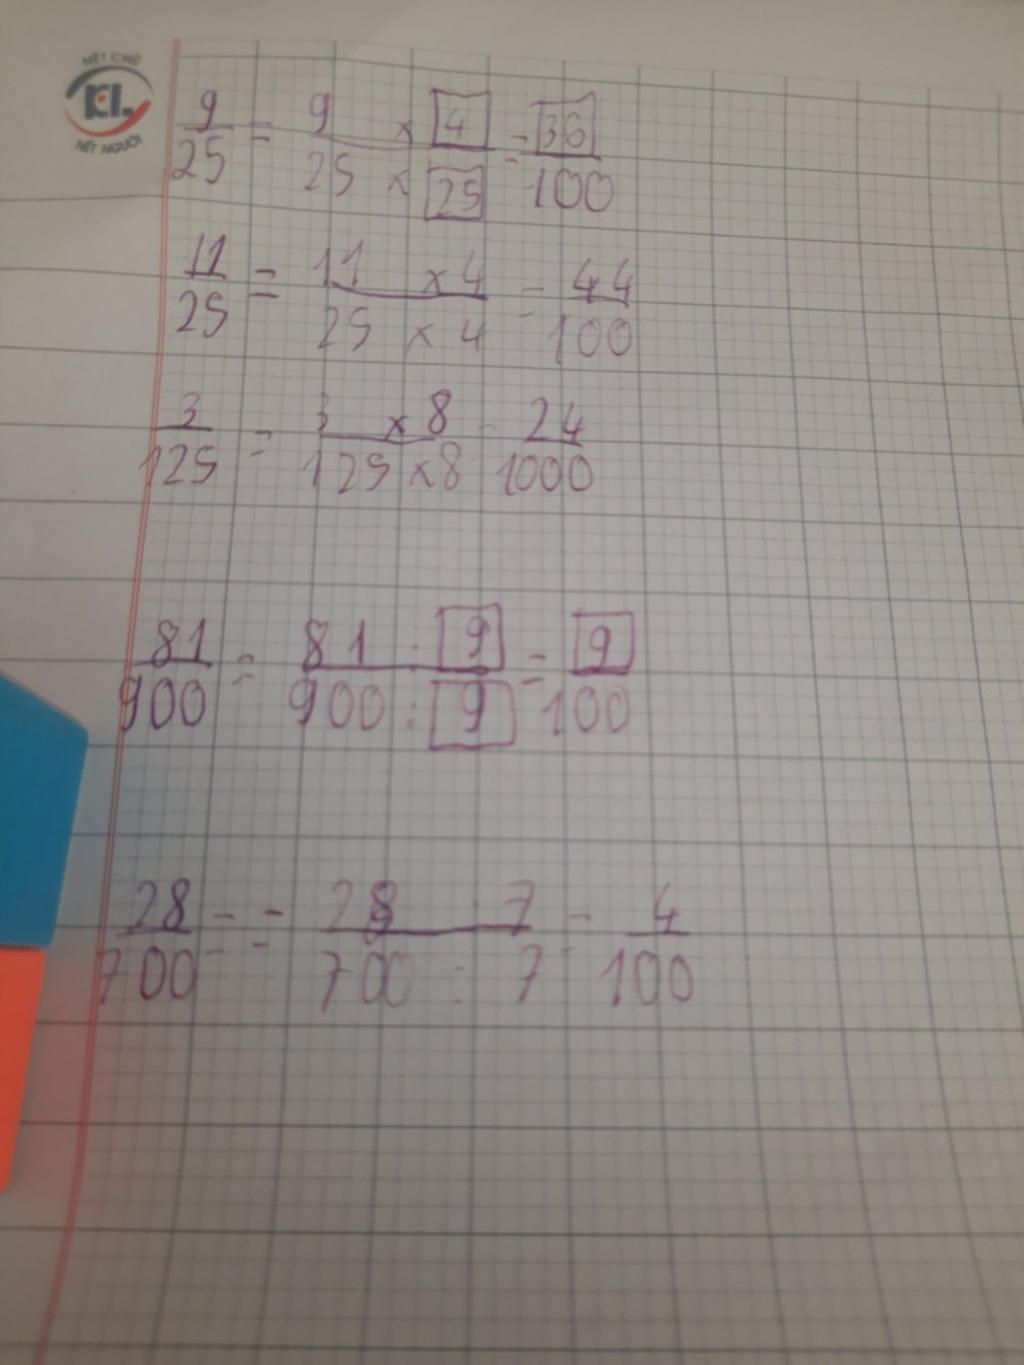 NÉT CHỮ
KL
NẾT NGƯỜI
9/25 = 9 × 4 / 25 × 25 = 36/100
11/25 = 11 × 4 / 25 × 4 = 44/100
3/125 = 3 × 8 / 125 × 8 = 24/1000
81/900 = 81 : 9 / 900 : 9 = 9/100
28/700 = = 28 : 7 / 700 : 7 = 4/100